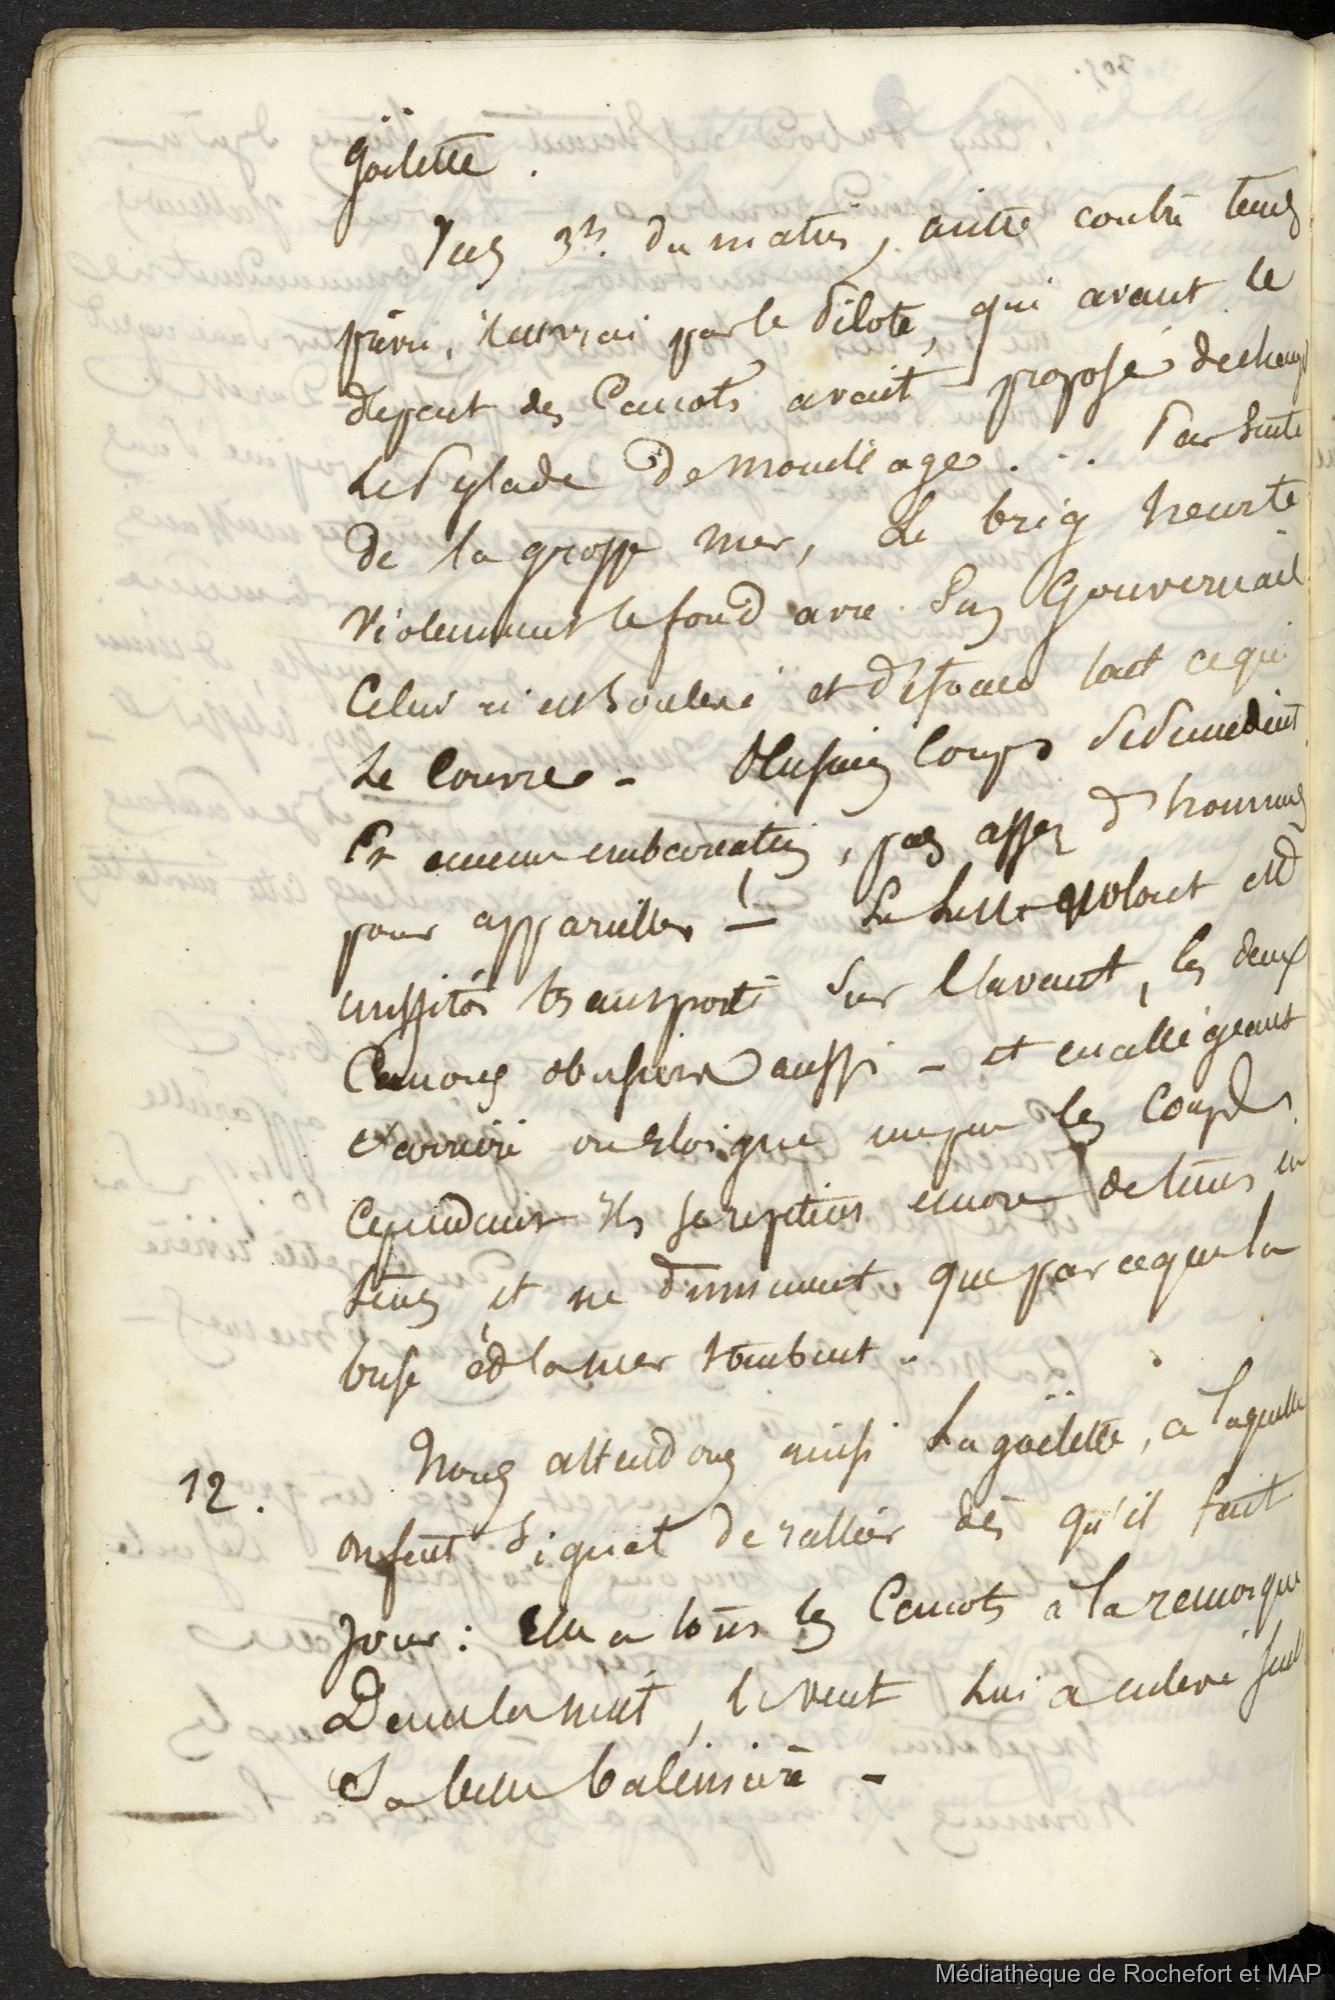 göelette.
Vers 3h. du matin, autre contre tems
prévu, il est vrai par le Pilote, qui avant le
départ des Canots avait proposé de changer
Le Pylade De mouillage... Par suite
de la grosse mer, Le brig heurte
violemment le fond avec Son Gouvernail
Celui ci est Soulevé et défonce tout ce qui
Le Couvre - Plusieurs Coups Succèdent
Et aucune embarcation, pas assez d'hommes
pour appareiller! - Le Lest volant est
aussitôt transporté Sur l'avant, les deux
Canons obusiers aussi - et en allégeant
l'arrière on éloigne un peu les Coups
Cependant ils Se répètent encore de tems en
tems, et ne diminuent que parceque la
brise et la mer tombent.
12.
Nous attendons ainsi La göelette, à laquelle
on fait Signal de rallier dès qu'il fait
jour: Elle a tous les Canots à la remorque
Dans la nuit, le vent Lui a enlevé seul
Sa belle baleinière -
Médiathèque de Rochefort et MAP